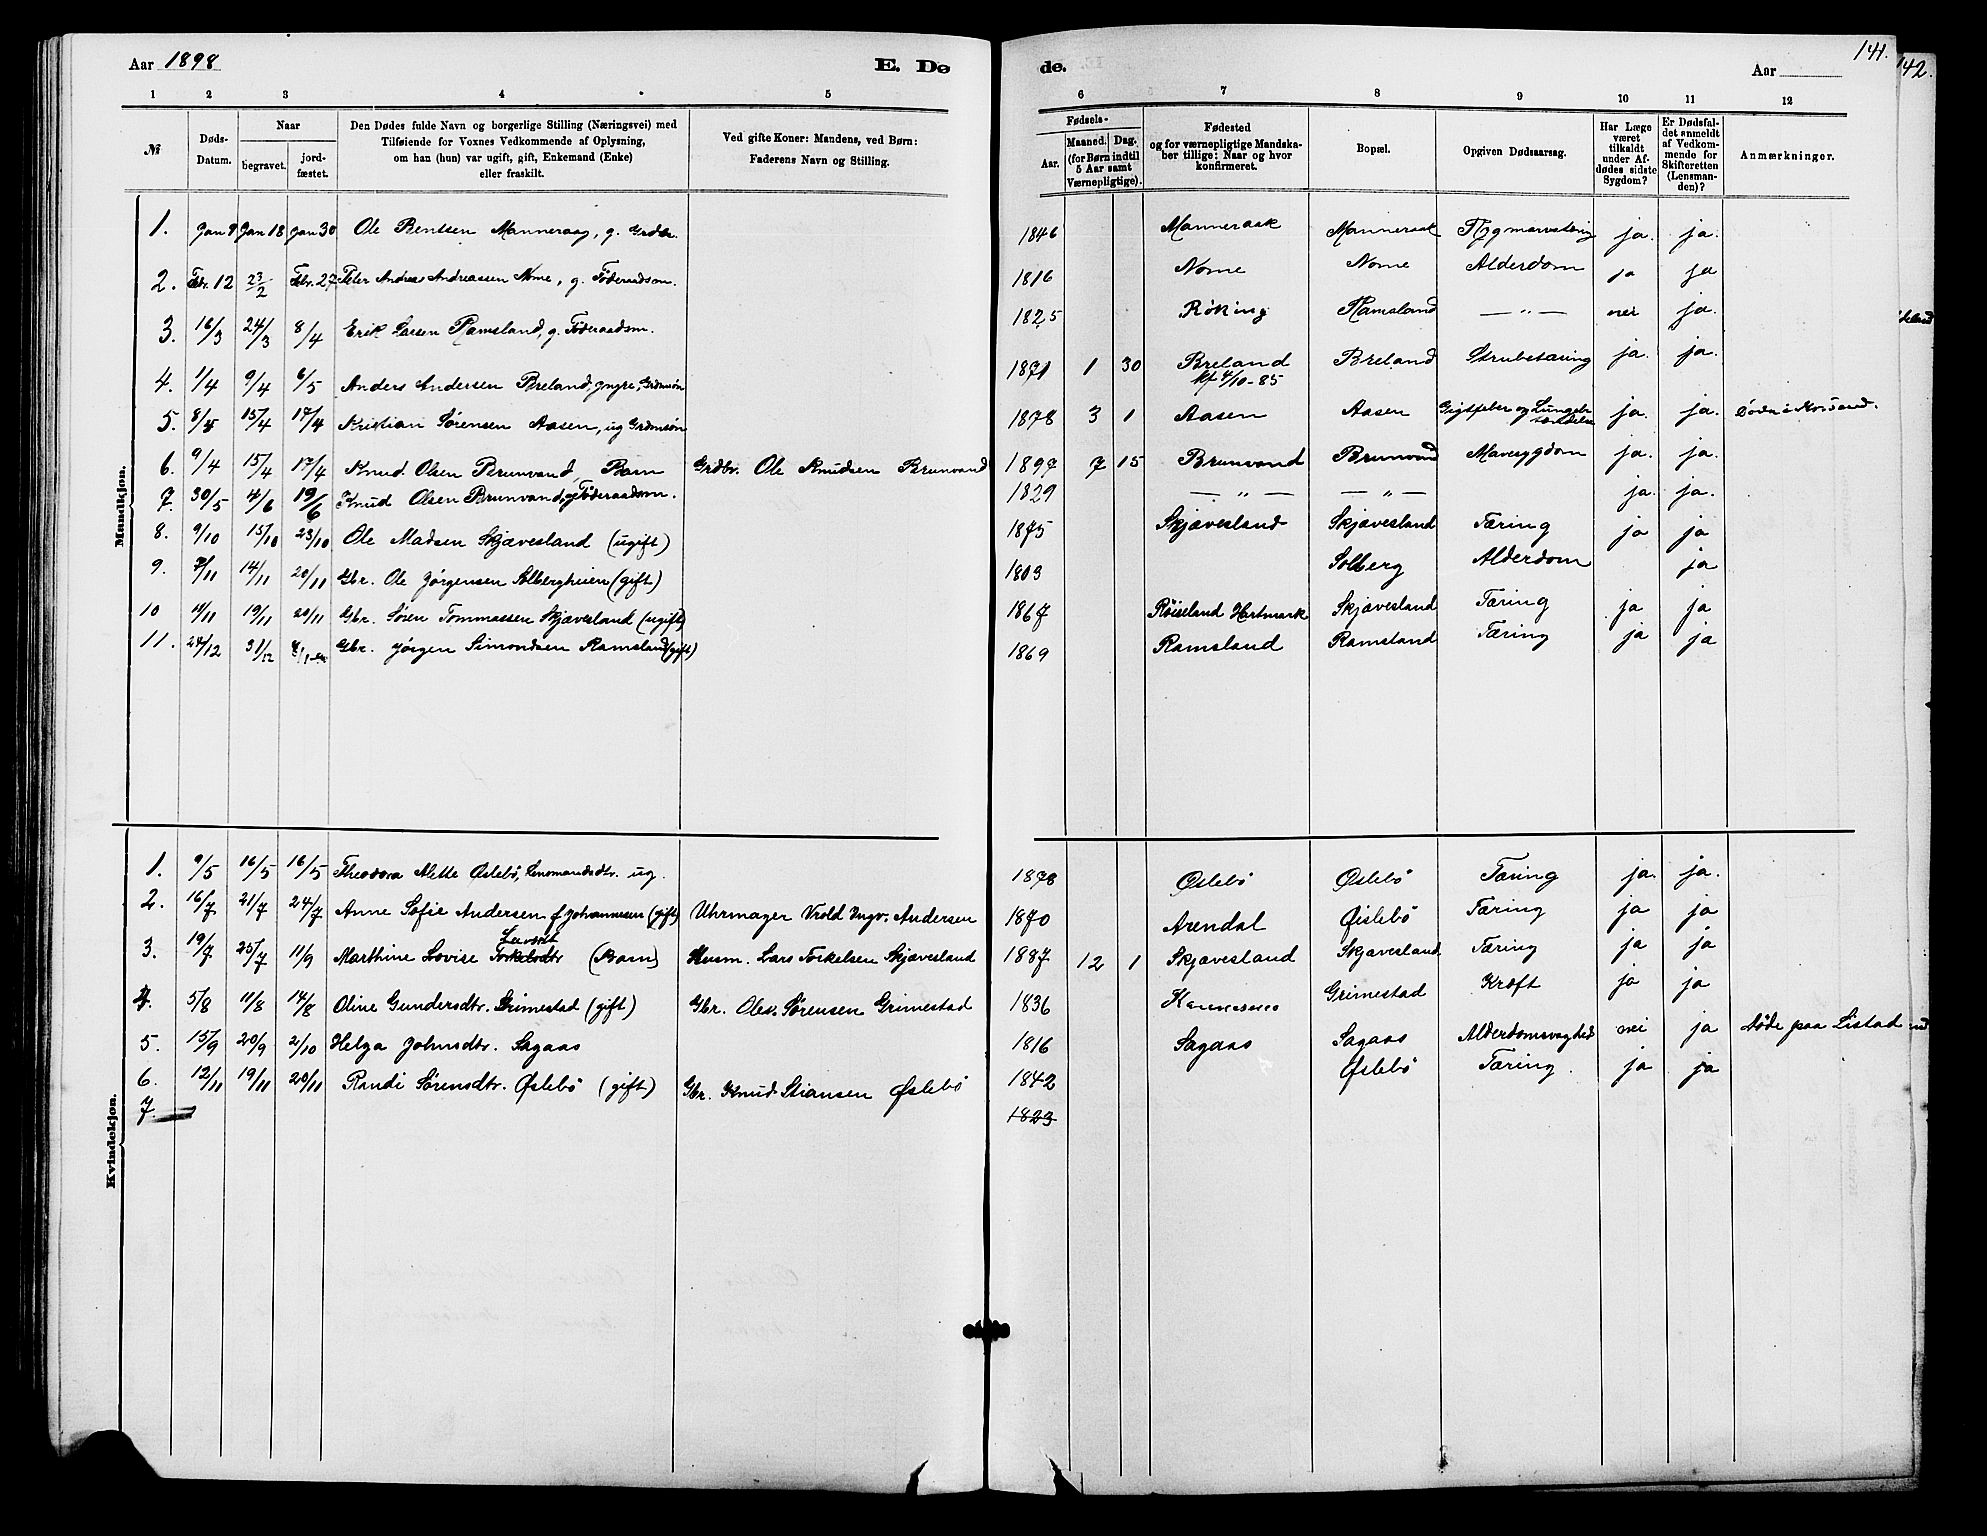 Aar 1898
E. Dø
de.
Aar
141.
142.
1 2 3 4 5 6 7 8 9 10 11 12
№
Døds-Datum.
Naar
begravet.
jord-fæstet.
Den Dødes fulde Navn og borgerlige Stilling (Næringsvei) med
Tilføiende for Voxnes Vedkommende af Oplysning,
om han (hun) var ugift, gift, Enkemand (Enke)
eller fraskilt.
Ved gifte Koner: Mandens, ved Børn:
Faderens Navn og Stilling.
Fødsels-
Aar.
Maaned. Dag.
(for Børn indtil
5 Aar samt
Værnepligtige).
Fødested
og for værnepligtige Mandska-
ber tillige: Naar og hvor
konfirmeret.
Bopæl.
Opgiven Dødsaarsag.
Har Læge
været
tilkaldt
under Af-
dødes sidste
Sygdom?
Er Dødsfal-
det anmeldt
af Vedkom-
mende for
Skifteretten
(Lensman-
den)?
Anmærkninger.
Mandkjøn.
1. Jan 9 Jan 18 Jan 30 Ole Bentsen Manneraag, g. Grdbr. 1846 Manneraak Manneraak ja. ja.
2. Febr. 12 23/2 Febr. 27 Peter Andreas Andreassen Nome, g. Föderaadsm. 1816 Nome Nome Alderdom ja ja
3. 16/3 24/3 8/4 Erik Larsen Ramsland, g. Föderaadsm. 1825 Röking Ramsland — " — nei ja.
4. 1/4 9/4 6/5 Anders Andersen Breland, yngre, Grdmsön 1871 1 30 Breland Breland Strubetæring ja. ja.
kf 4/10-85
5. 8/4 15/4 17/4 Kristian Sörensen Aasen, ug Grdmsön 1878 3 1 Aasen Aasen Gigtfeber og Lungebetændelse ja. ja.
6. 9/4 15/4 17/4 Knud Olsen Brunvand, Barn Grdbr. Ole Knudsen Brunvand 1897 7 15 Brunvand Brunvand Mavesygdom ja. ja.
7. 30/5 4/6 19/6 Knud Olsen Brunvand, g Föderaadsm. 1829 — " — — " — ja. ja.
8. 9/10 15/10 23/10 Ole Madsen Skjævesland (ugift) 1875 Skjævesland Skjævesland Tæring ja ja
9. 7/11 14/11 20/11 Gbr. Ole Jörgensen Solbergheien (gift) 1803 Solberg Alderdom ja
10 11/11 19/11 20/11 Gbr. Sören Tommassen Skjævesland (ugift) 1867 Röiseland Hartmark Skjævesland Tæring ja ja
11. 24/12 31/12 Gbr. Jörgen Simondsen Ramsland (gift) 1869 Ramsland Ramsland Tæring ja ja
Kvindekjøn.
1. 9/5 16/5 16/5 Theodora Mette Öslebö, Lensmandsdtr. ug. 1878 Öslebö Öslebö Tæring ja. ja.
2. 16/7 21/7 24/7 Anne Sofie Andersen f. Johannesen (gift) Uhrmager Vrold Ingv. Andersen 1870 Arendal Öislebö Tæring ja ja
3. 19/7 25/7 11/9 Marthine Lovise Torkelsdtr (Barn) Husm. Lars Torkelsen Skjævesland 1887 12 1 Skjævesland Skjævesland Tæring ja ja
4. 5/8 11/8 14/8 Oline Gundersdtr. Grimestad (gift) Gbr. Oles. Sørensen Grimestad 1836 Grimestad Kræft ja ja
5. 15/9 20/9 2/10 Helga Johnsdtr. Sagaas 1816 Sagaas Sagaas Alderdomsvaghed nei ja Döde paa Listad
6. 12/11 19/11 20/11 Randi Sörensdtr. Öslebö (gift) Gbr. Knud Stiansen Øslebö 1842 Øslebö Tæring. ja ja
7. 1823